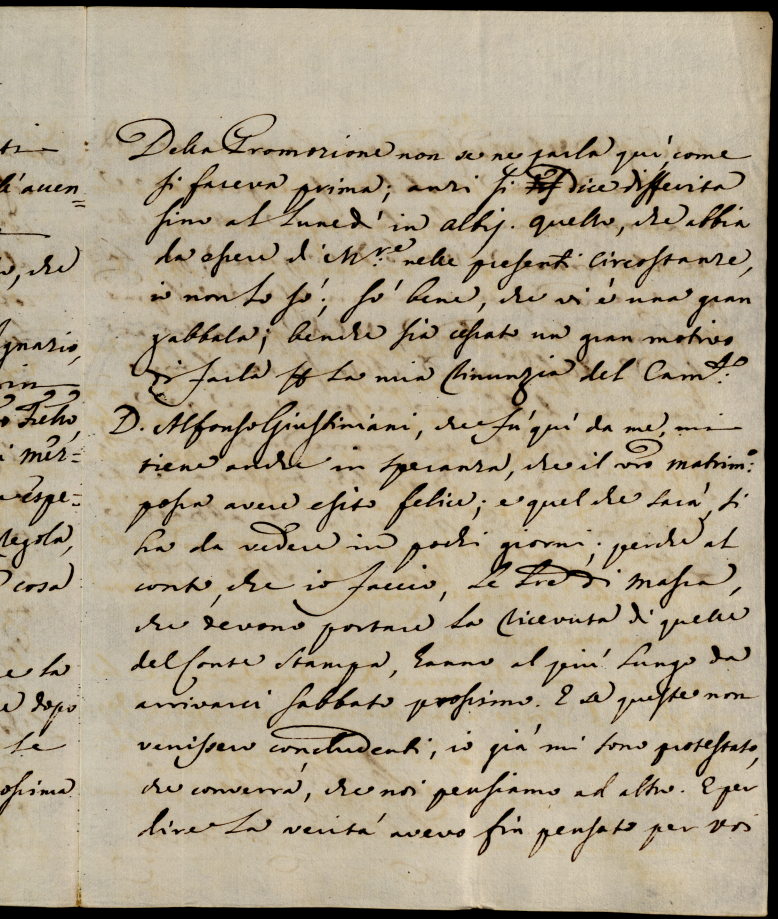 ti
li' auen=
o, che
gnazio,
rin
o Fr̃ello,
i mer=
espe=
regola,
cosa
e la
e dopo
le
ossima
Della Promozione non se ne parla quì, come
si faceva prima; anzi si dice differita
sino al Lunedì in albis. quello, che abbia
da essere di M.re nelle presenti circostanze,
io non lo sò; sò bene, che vi è una gran
gabbala; benche sia cessato un gran motivo
di farla la mia Rinunzia del Cam.to
D. Alfonso Giustiniani, che fù quì da me, mi
tiene anche in speranza, che il vr̃o matrim.o
possa avere esito felice; e quel che sarà, si
ha da vedere in pochi giorni; perche al
conto, che io faccio, le Lre di Massa,
che devono portare la Ricevuta di quelle
del Conte Stampa, hanno al più lungo da
arrivarci Sabbato prossimo. E se queste non
venissero concludenti, io già mi sono protestato,
che converrà, che noi pensiamo ad altro. E per
dire la verità avevo fin pensato per voi